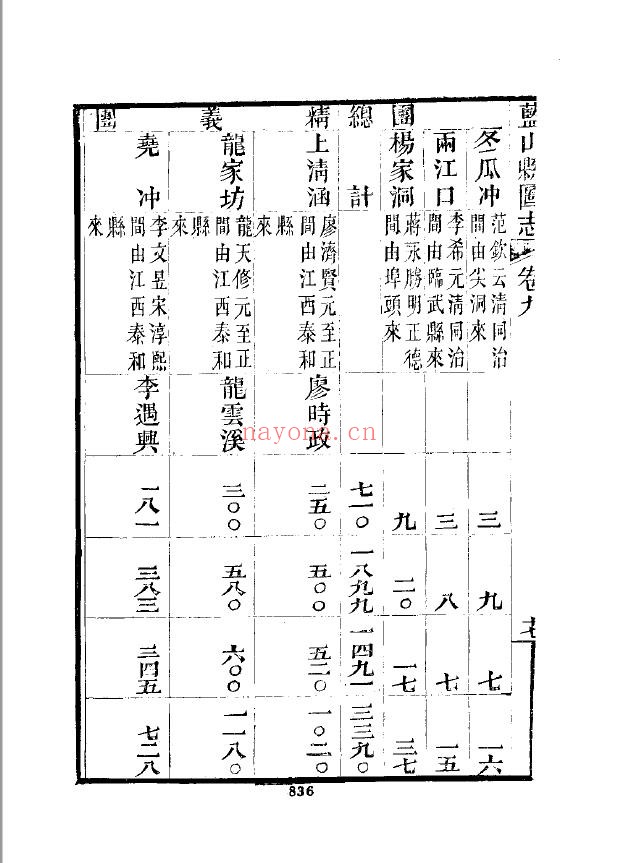 藍山縣圖志 卷九
冬瓜冲 范欽云清同治間由尖洞來 三 九 七 一六
兩江口 李希元清同治間由臨武縣來 三 八 七 一五
團
楊家洞 蔣永勝明正德間由埠頭來 九 二〇 一七 三七
總計 七一〇 一八九九 一四九一 三三九〇
精義團
上清涵 廖濟賢元至正間由江西泰和縣來 廖時政 二五〇 五〇〇 五二〇 一〇二〇
龍家坊 龍天修元至正間由江西泰和縣來 龍雲溪 三〇〇 五八〇 六〇〇 一一八〇
堯冲 李文昱宋淳熙間由江西泰和縣來 李遇興 一八一 三八三 三四五 七二八
nayona.cn
836